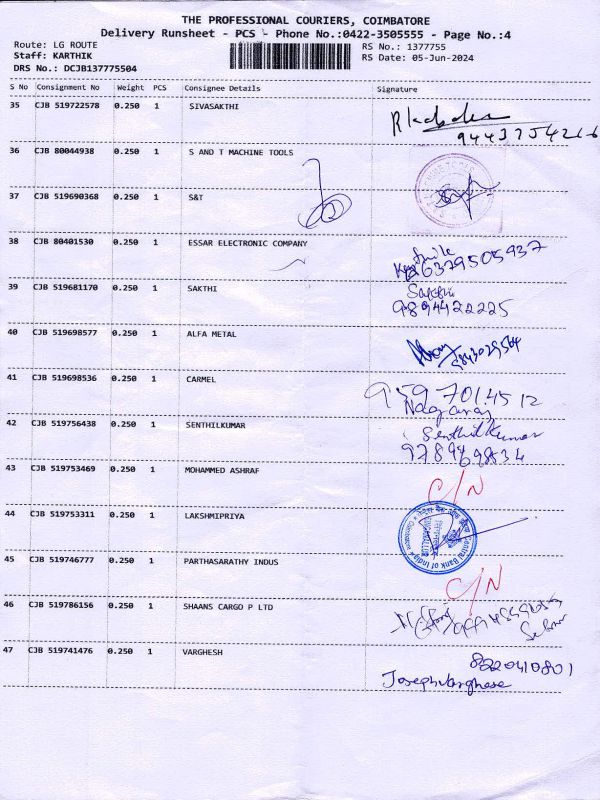 THE PROFESSIONAL COURIERS, COIMBATORE
Delivery Runsheet - PCS - Phone No.:0422-3505555 - Page No.:4
Route: LG ROUTE RS No.: 1377755
Staff: KARTHIK RS Date: 05-Jun-2024
DRS No.: DCJB137775504
S No Consignment No Weight PCS Consignee Details Signature
35 CJB 519722578 0.250 1 SIVASAKTHI
36 CJB 80044938 0.250 1 S AND T MACHINE TOOLS
37 CJB 519690368 0.250 1 S&T
38 CJB 80401530 0.250 1 ESSAR ELECTRONIC COMPANY
6379505937
39 CJB 519681170 0.250 1 SAKTHI
9894422225
40 CJB 519698577 0.250 1 ALFA METAL
41 CJB 519698536 0.250 1 CARMEL
9597014512
Nagaraj
42 CJB 519756438 0.250 1 SENTHILKUMAR
Senthil Kumar
43 CJB 519753469 0.250 1 MOHAMMED ASHRAF
C/N
44 CJB 519753311 0.250 1 LAKSHMIPRIYA
Central Bank of India
45 CJB 519746777 0.250 1 PARTHASARATHY INDUS
C/N
46 CJB 519786156 0.250 1 SHAANS CARGO P LTD
47 CJB 519741476 0.250 1 VARGHESH
8220410801
Joseph Varghese